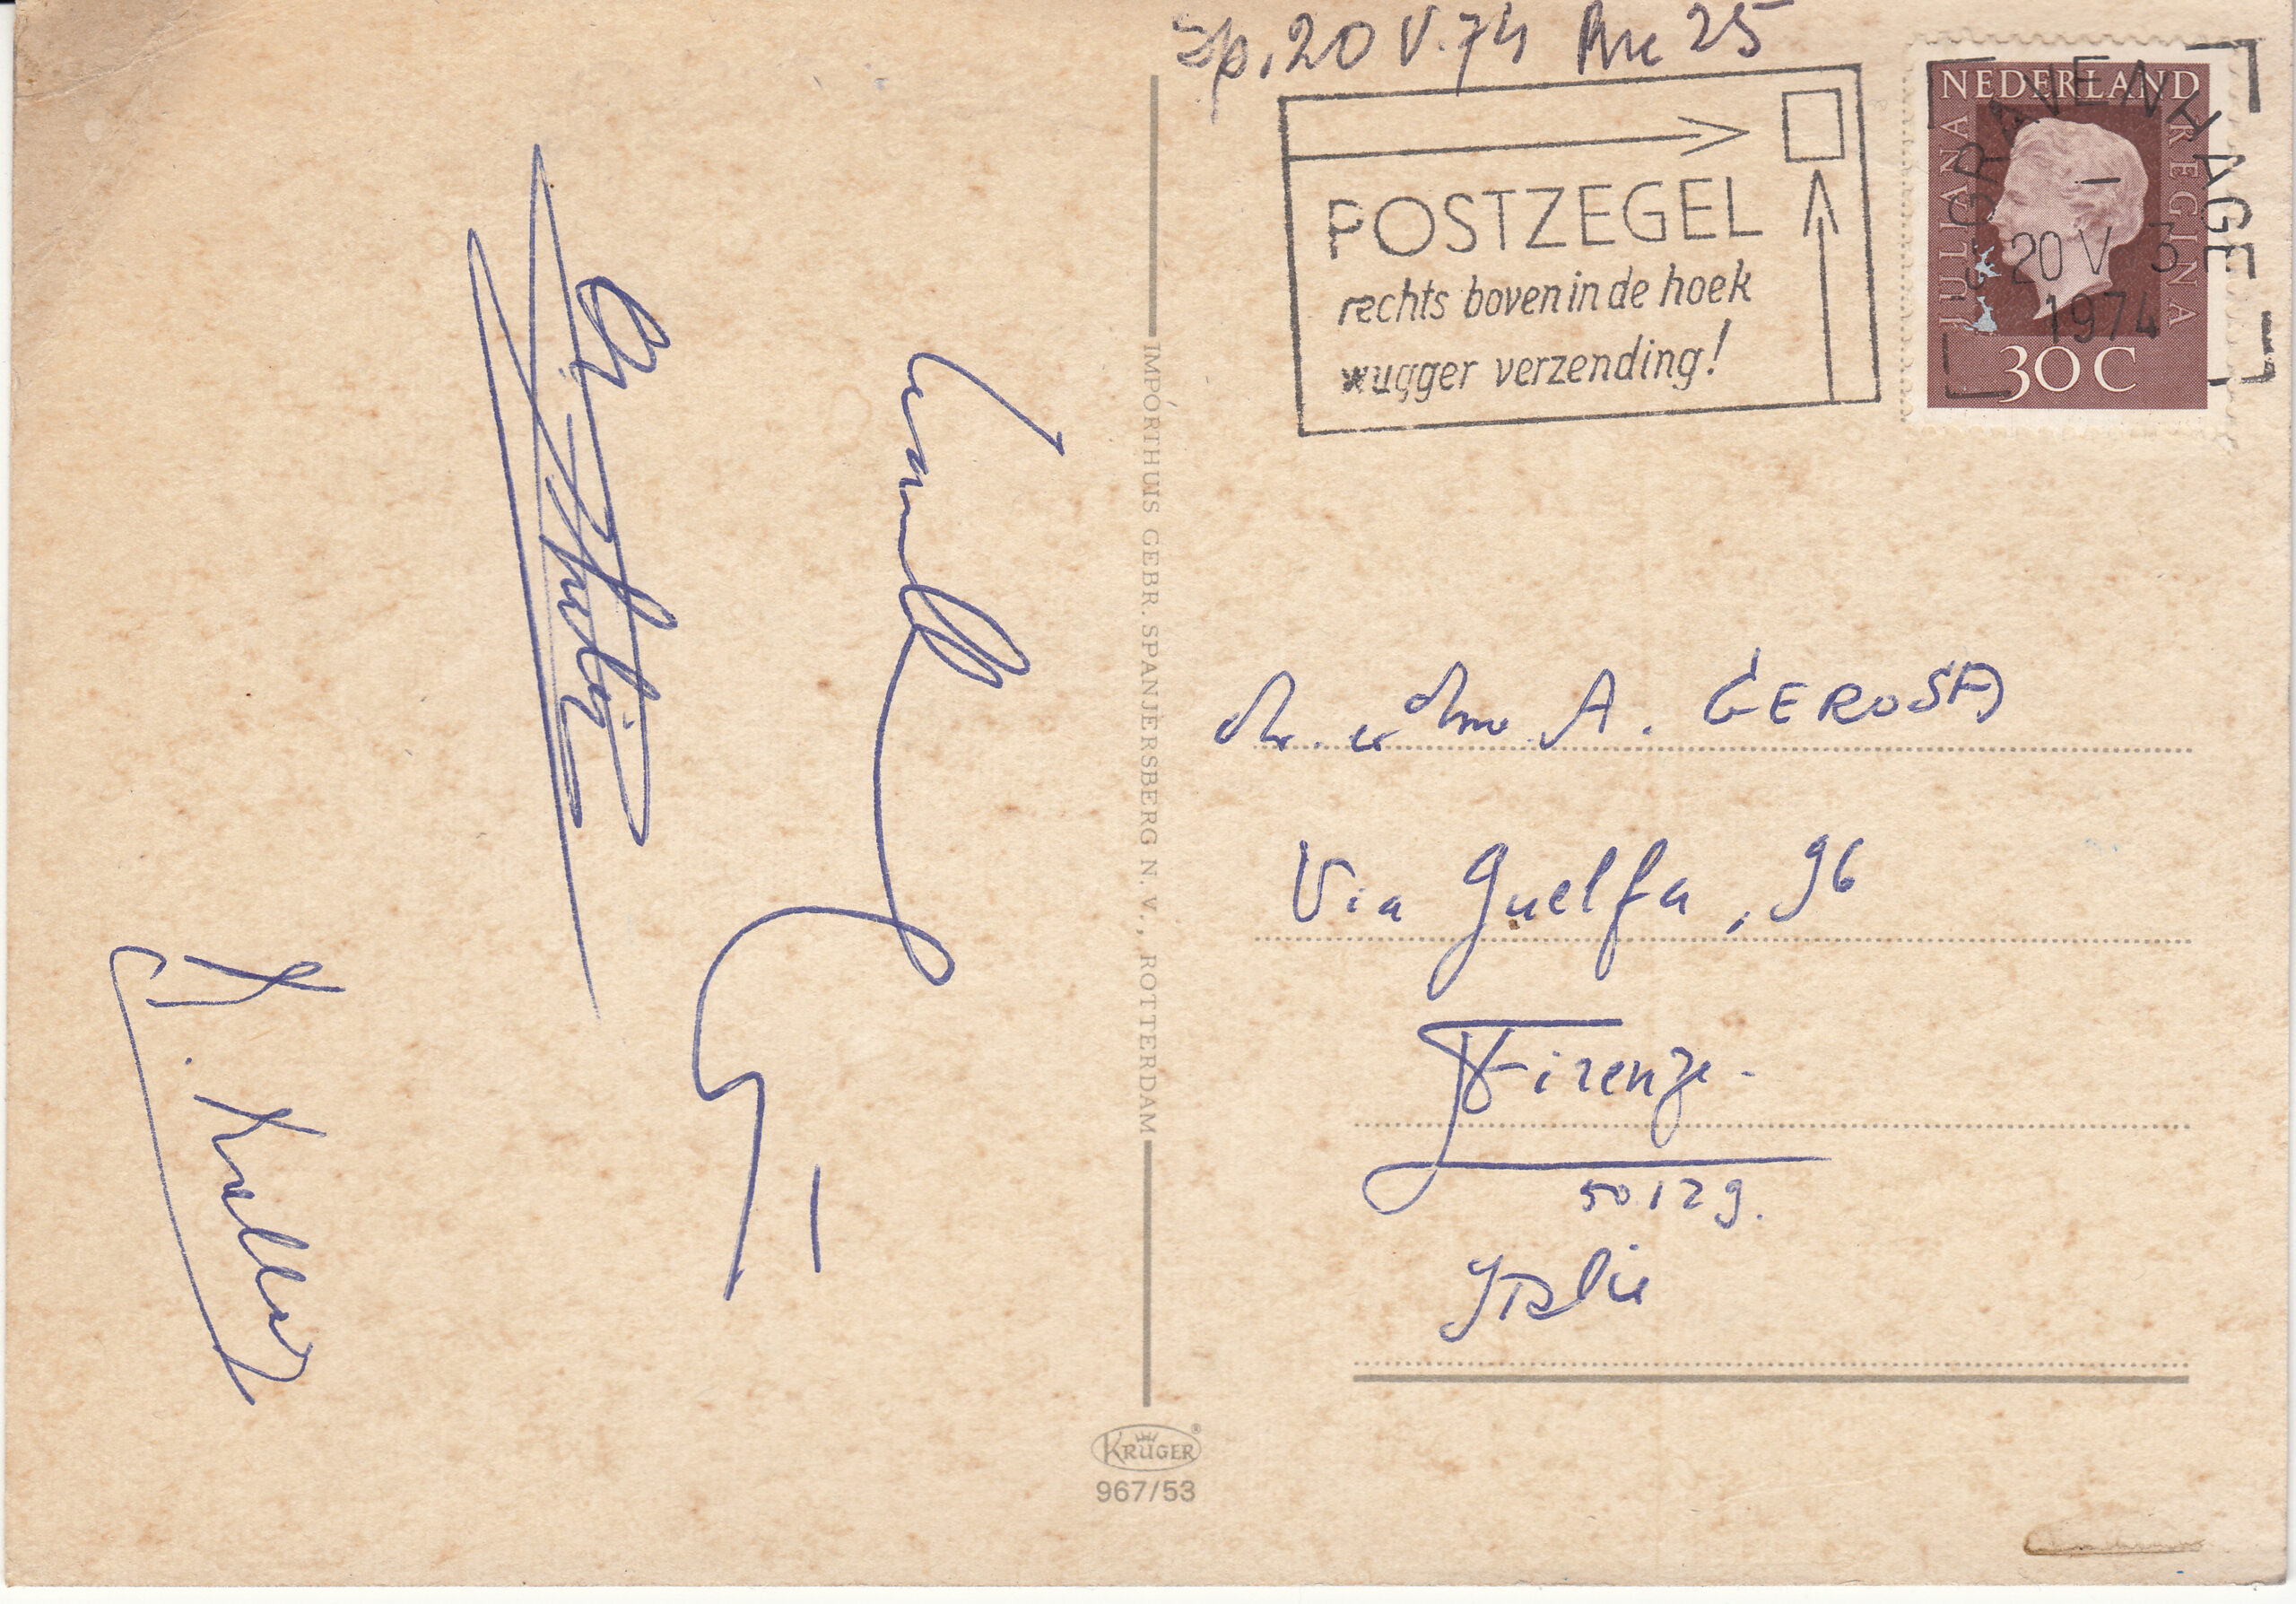 20 V. 74 25
POSTZEGEL
rechts boven in de hoek
vlugger verzending!
NEDERLAND
JULIANA REGINA
'S-GRAVENHAGE
20 V
1974
30 C
IMPORTHUIS GEBR. SPANJERSBERG N.V., ROTTERDAM
A. GEROSA
Via Guelfa, 96
Firenze.
50129.
Italie
KRÜGER
967/53